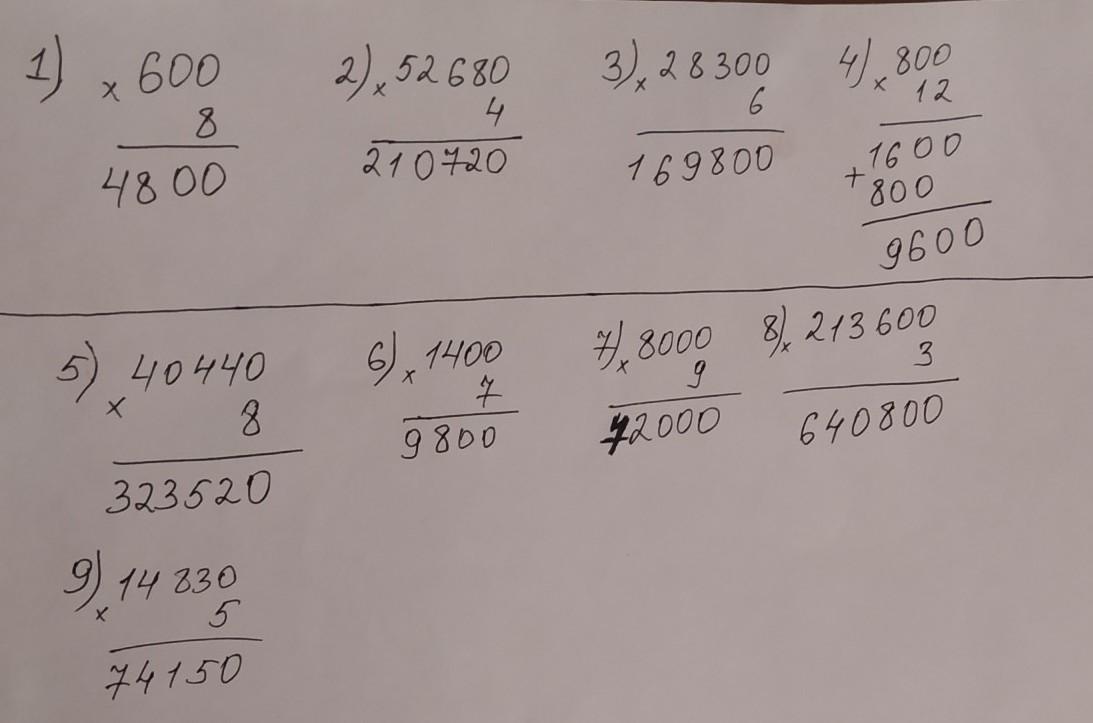 1) × 600
8
4800
2) × 52680
4
210720
3) × 28300
6
169800
4) × 800
12
1600
+
800
9600
5) × 40440
8
323520
6) × 1400
7
9800
7) × 8000
9
72000
8) × 213600
3
640800
9) × 14830
5
74150